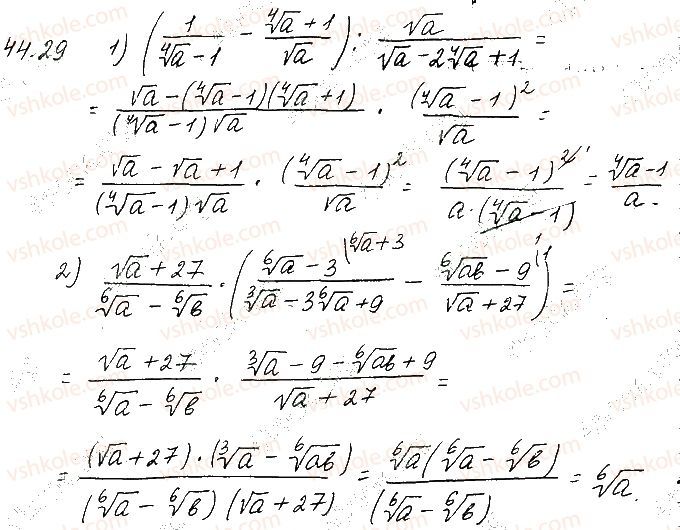 44.29 1) (1/(⁴√a − 1) − (⁴√a + 1)/√a) : √a/(√a − 2⁴√a + 1) =
= (√a − (⁴√a − 1)(⁴√a + 1))/((⁴√a − 1)√a) · (⁴√a − 1)²/√a =
= (√a − √a + 1)/((⁴√a − 1)√a) · (⁴√a − 1)²/√a = (⁴√a − 1)²/(a · (⁴√a − 1)) = (⁴√a − 1)/a.
2) (√a + 27)/(⁶√a − ⁶√в) · ((⁶√a − 3)/(³√a − 3⁶√a + 9) − (⁶√aв − 9)/(√a + 27)) =
= (√a + 27)/(⁶√a − ⁶√в) · (³√a − 9 − ⁶√aв + 9)/(√a + 27) =
= ((√a + 27) · (³√a − ⁶√aв))/((⁶√a − ⁶√в)(√a + 27)) = ⁶√a(⁶√a − ⁶√в)/(⁶√a − ⁶√в) = ⁶√a.